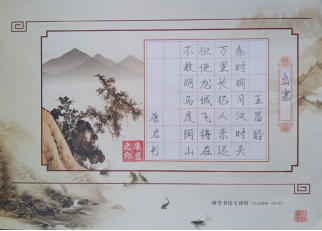 出塞
王昌龄
秦时明月汉时关
万里长征人未还
但使龙城飞将在
不教胡马度阴山
康岩书
康岩之印